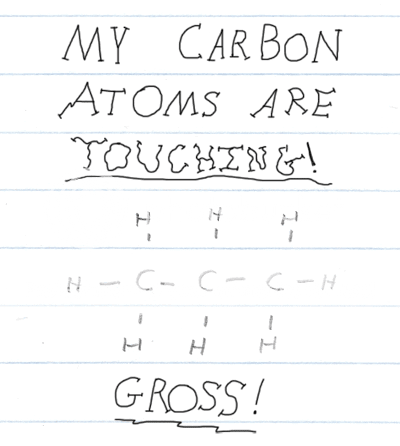 MY CARBON
ATOMS ARE
TOUCHING!
H H H
H - C - C - C - H
H H H
GROSS!